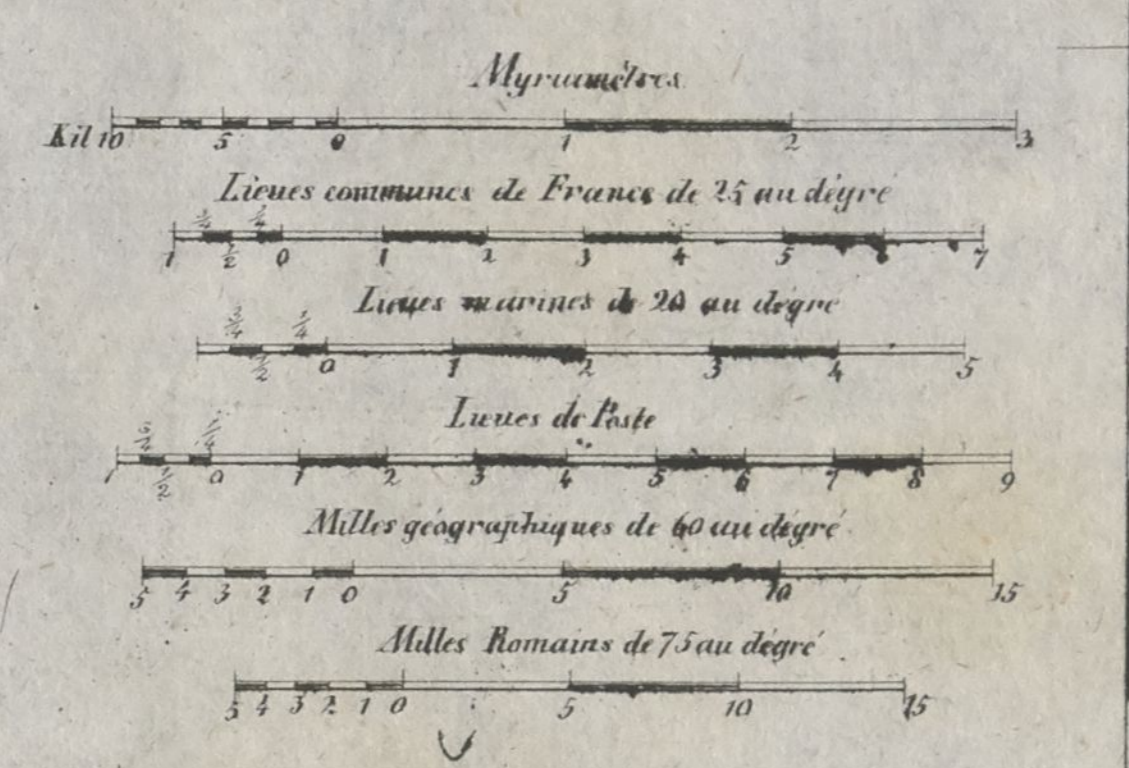 Myriamètres
Kil 10 5 0 1 2 3
Lieues communes de France de 25 au dégré
3/4 1/4
1 1/2 0 1 2 3 4 5 6 7
Lieues marines de 20 au dégré
3/4 1/4
1/2 0 1 2 3 4 5
Lieues de Poste
3/4 1/4
1 1/2 0 1 2 3 4 5 6 7 8 9
Milles géographiques de 60 au dégré
5 4 3 2 1 0 5 10 15
Milles Romains de 75 au dégré
5 4 3 2 1 0 5 10 15